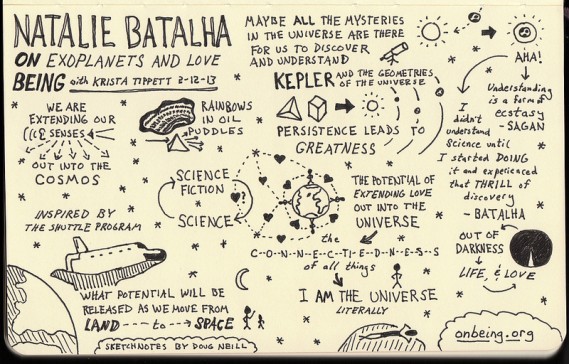 NATALIE BATALHA
ON EXOPLANETS AND LOVE
BEING with KRISTA TIPPETT 2-12-13
MAYBE ALL THE MYSTERIES
IN THE UNIVERSE ARE THERE
FOR US TO DISCOVER
AND UNDERSTAND
AHA!
KEPLER AND THE GEOMETRIES
OF THE UNIVERSE
PERSISTENCE LEADS TO
GREATNESS
Understanding
is a form of
ecstasy
- SAGAN
I
didn't
understand
Science until
I started DOING
it and experienced
that THRILL of
discovery
- BATALHA
WE ARE
EXTENDING OUR
SENSES
OUT INTO THE
COSMOS
RAINBOWS
IN OIL
PUDDLES
SCIENCE
FICTION
?
SCIENCE
THE POTENTIAL OF
EXTENDING LOVE
OUT INTO THE
UNIVERSE
the
C-O-N-N-E-C-T-E-D-N-E-S-S
of all things
I AM THE UNIVERSE
LITERALLY
OUT OF
DARKNESS
LIFE, & LOVE
INSPIRED BY
THE SHUTTLE PROGRAM
WHAT POTENTIAL WILL BE
RELEASED AS WE MOVE FROM
LAND ---to--> SPACE
SKETCHNOTES BY DOUG NEILL
onbeing.org